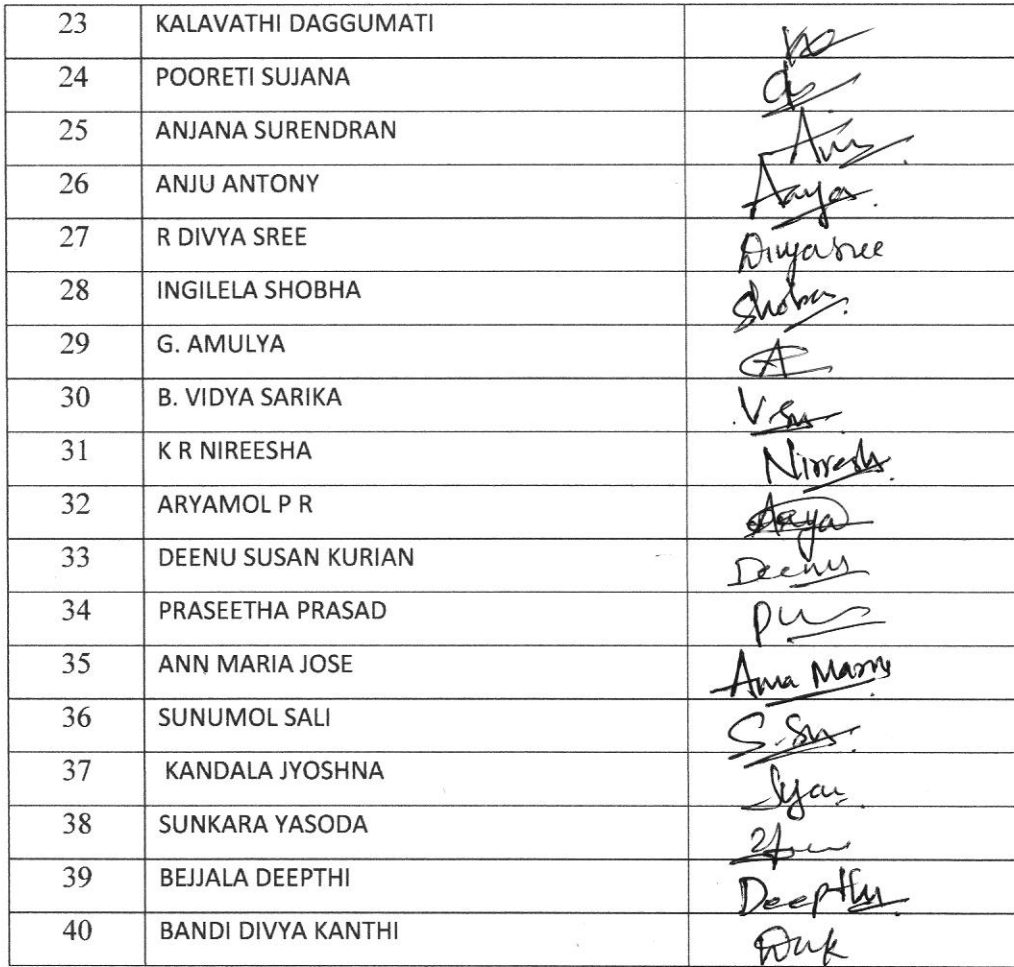 23 KALAVATHI DAGGUMATI
24 POORETI SUJANA
25 ANJANA SURENDRAN
26 ANJU ANTONY
27 R DIVYA SREE Divyasree
28 INGILELA SHOBHA Shoba
29 G. AMULYA A
30 B. VIDYA SARIKA
31 K R NIREESHA
32 ARYAMOL P R Arya
33 DEENU SUSAN KURIAN Deenu
34 PRASEETHA PRASAD
35 ANN MARIA JOSE
36 SUNUMOL SALI
37 KANDALA JYOSHNA
38 SUNKARA YASODA
39 BEJJALA DEEPTHI Deepthi
40 BANDI DIVYA KANTHI